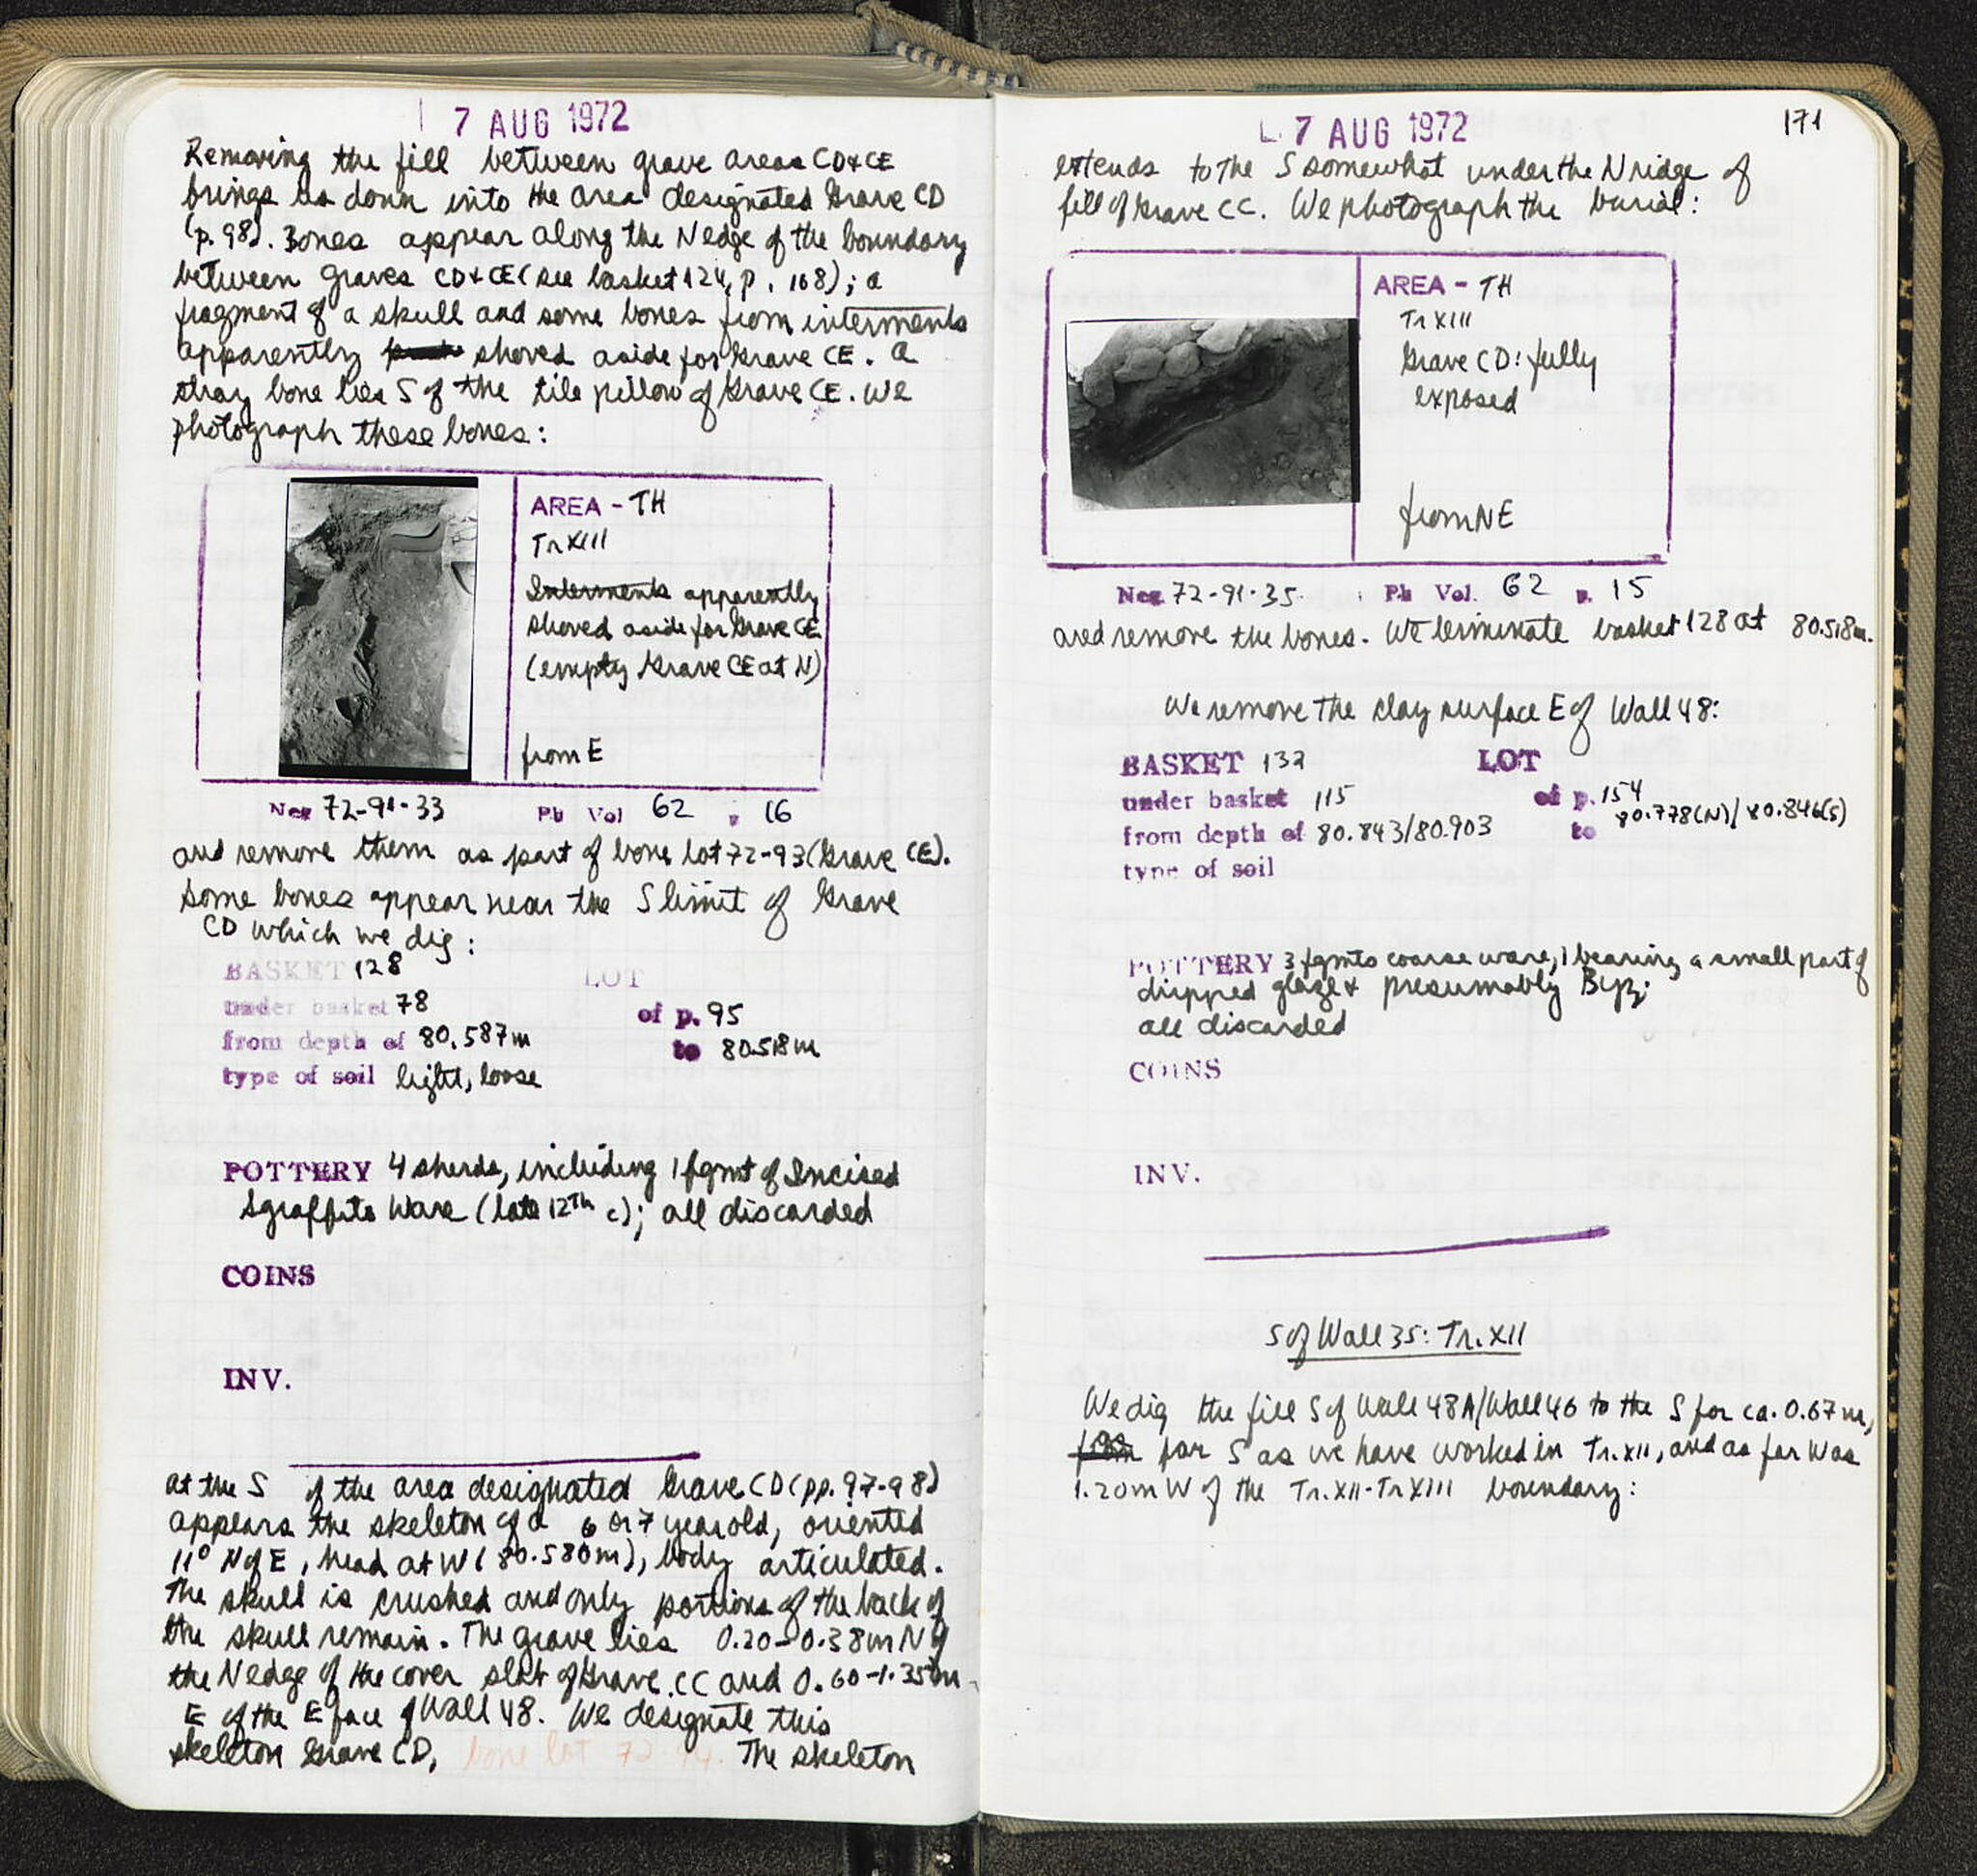 7 AUG 1972
Removing the fill between grave areas CD+CE
brings us down into the area designated Grave CD
(p. 98). Bones appear along the N edge of the boundary
between graves CD+CE (see basket 124, p. 168); a
fragment of a skull and some bones from interments
apparently shoved aside for Grave CE. A
stray bone lies S of the tile pillow of Grave CE. We
photograph these bones:
AREA - TH
Tr XIII
Interments apparently
shoved aside for Grave CE
(empty Grave CE at N)
from E
Neg 72-91-33 Ph Vol 62 p 16
and remove them as part of bone lot 72-93 (Grave CE).
Some bones appear near the S limit of Grave
CD which we dig:
BASKET 128 LOT
under basket 78 of p. 95
from depth of 80.587m to 80.518m
type of soil light, loose
POTTERY 4 sherds, including 1 fgmt of Incised
Sgraffito Ware (late 12th c); all discarded
COINS
INV.
At the S of the area designated Grave CD (pp. 97-98)
appears the skeleton of a 6 or 7 year old, oriented
11° N of E, head at W (80.580m), body articulated.
The skull is crushed and only portions of the back of
the skull remain. The grave lies 0.20-0.38m N of
the N edge of the cover slab of Grave CC and 0.60-1.35m
E of the E face of Wall 48. We designate this
skeleton Grave CD, bone lot 72-94. The skeleton
7 AUG 1972
171
extends to the S somewhat under the N ridge of
fill of Grave CC. We photograph the burial:
AREA - TH
Tr XIII
Grave CD: fully
exposed
from NE
Neg 72-91-35 Ph Vol. 62 p. 15
and remove the bones. We terminate basket 128 at 80.518m.
We remove the clay surface E of Wall 48:
BASKET 132 LOT
under basket 115 of p. 154
from depth of 80.843/80.903 to 80.778(N)/80.846(S)
type of soil
POTTERY 3 fgmts coarse ware, 1 bearing a small part of
dripped glaze + presumably Byz;
all discarded
COINS
INV.
S of Wall 35: Tr. XII
We dig the fill S of Wall 48A/Wall 46 to the S for ca. 0.67m,
far S as we have worked in Tr. XII, and as far W as
1.20m W of the Tr. XII-Tr XIII boundary: